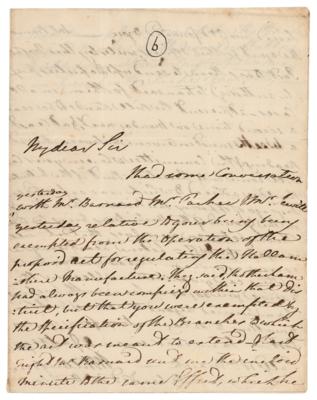 6
My dear Sir
I had some Conversation
yesterday
with Mr. Barnard Mr. Parker &
yesterday relative to your being
exempted from the Operation of the
proposd act for regulating the Hallam
shire Manufacture. They said, Rotherham
had always been comprised within that Dis
trict, but that you were exempted by
the Specification of the Branches to which
the act was meant to extend. I
Mr. Barnard sent me the inclosd
to the same Effect, which he